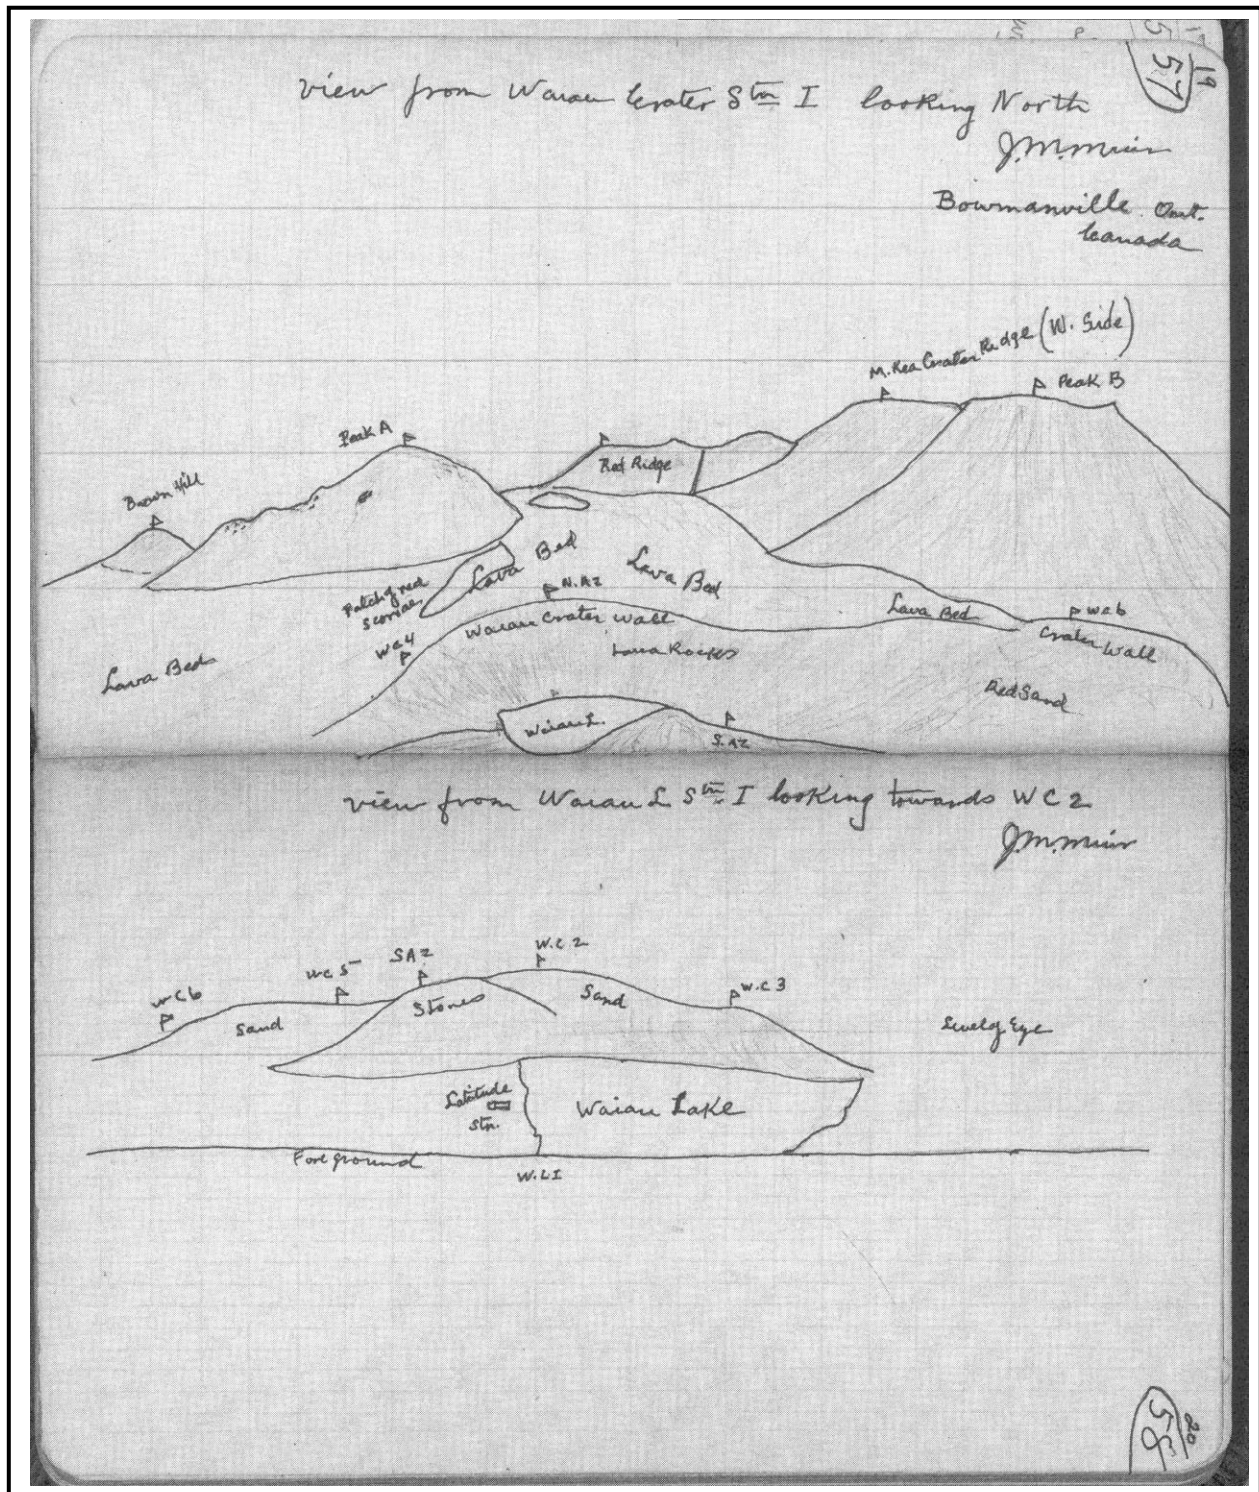 19
57
view from Waiau Crater Stn I looking North
J.M. Muir
Bowmanville Ont.
Canada
M. Kea Crater Ridge (W. Side)
Peak B
Peak A
Red Ridge
Brown Hill
Lava Bed
Lava Bed
Patch of red
scoriae
N. Az
Lava Bed
W C 6
Waiau Crater Wall
Crater Wall
W C 4
Lava Rocks
Lava Bed
Red Sand
Waiau L.
S. Az
view from Waiau L Stn I looking towards W C 2
J.M. Muir
W.C 2
S A Z
W C 5
W.C 3
W C 6
Sand
Stones
Sand
Level of Eye
Latitude
Stn.
Waiau Lake
Foreground
W. L I
20
58